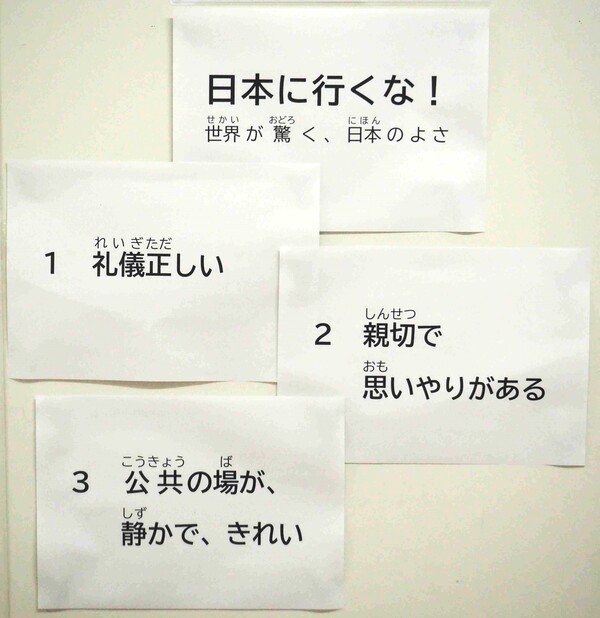 日本に行くな！
せかい おどろ にほん
世界が驚く、日本のよさ
れいぎただ
1 礼儀正しい
しんせつ
2 親切で
おも
思いやりがある
こうきょう ば
3 公共の場が、
しず
静かで、きれい